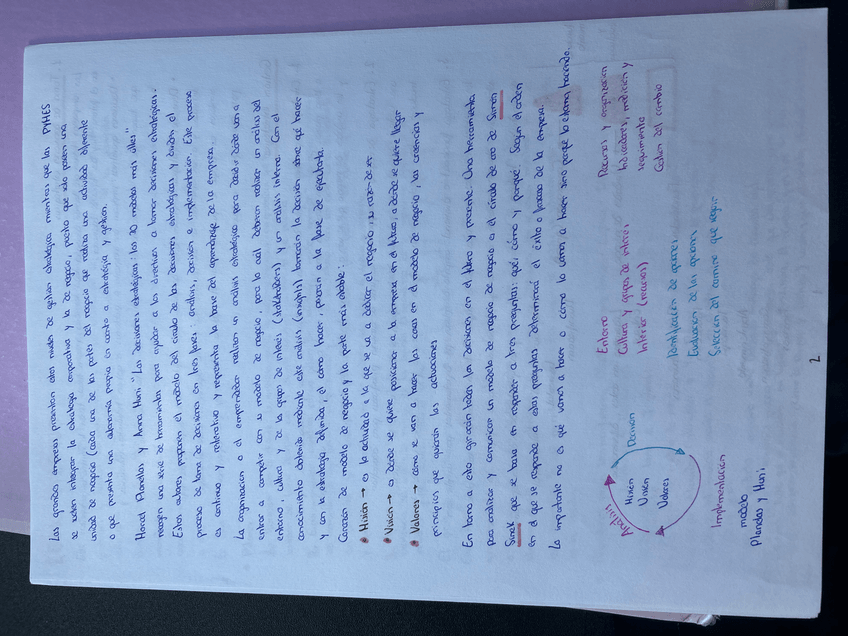 Las grandes empresas presentan estos niveles de gestión estratégica mientras que las PYMES
se suelen integrar la estrategia corporativa y la de negocio, puesto que solo poseen una
unidad de negocio (cada una de las partes del negocio que realiza una actividad diferente
o que presenta una autonomía propia en cuanto a estrategia y gestión.
Marcel Planellas y Anna Muni "Las decisiones estratégicas: los 30 modelos más útiles"
recogen una serie de herramientas para ayudar a los directivos a tomar decisiones estratégicas.
Estos autores proponen el modelo del círculo de las decisiones estratégicas y dividen el
proceso de toma de decisiones en tres fases: análisis, decisión e implementación. Este proceso
es continuo y reiterativo y representa la base del aprendizaje de la empresa.
La organización o el emprendedor realizan un análisis estratégico para decidir dónde van a
entrar a competir con su modelo de negocio, para lo cual deberán realizar un análisis del
entorno, cultura y de los grupos de interés (stakeholders) y un análisis interno. Con el
conocimiento obtenido mediante este análisis (insights) tomarán la decisión sobre qué hacer
y con la estrategia definida, el cómo hacer, pasarán a la fase de ejecutarla.
Corazón del modelo de negocio y la parte más estable:
• Misión → es la actividad a la que se va a dedicar el negocio, su razón de ser
• Visión → a dónde se quiere posicionar a la empresa en el futuro, a dónde se quiere llegar
• Valores → cómo se van a hacer las cosas en el modelo de negocio, las creencias y
principios que guiarán las actuaciones
En torno a esto girarán todas las decisiones en el futuro y presente. Una herramienta
para analizar y comunicar un modelo de negocio es el círculo de oro de Simon
Sinek que se basa en responder a tres preguntas: qué, cómo y porqué. Según el orden
en el que se responde a estas preguntas determinará el éxito o fracaso de la empresa.
Lo importante no es qué vamos a hacer o cómo lo vamos a hacer sino porqué lo estamos haciendo.
Análisis
Misión
Visión
Valores
Decisión
Implementación
modelo
Planellas y Muni
Entorno
Cultura y grupos de interés
Interior (recursos)
Identificación de opciones
Evaluación de las opciones
Selección del camino que seguir
Recursos y organización
Indicadores, medición y
seguimiento
Gestión del cambio
2